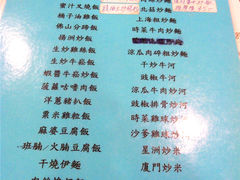 蜜汁叉燒飯
楊子油雞飯
佛山分蹄飯
揚洲炒飯
生炒雞絲飯
生炒牛崧飯
蝦醬牛崧炒飯
菠蘿咕嚕肉飯
洋葱豬扒飯
粟米雞粒飯
麻婆豆腐飯
班腩／火腩豆腐飯
干燒伊麵
北菇炒麵
上海粗炒麵
時菜牛肉炒麵
涼瓜肉碎粗炒麵
干炒牛河
豉椒牛河
涼瓜牛肉炒河
豉椒排骨炒河
時菜雞球炒河
沙爹雞球炒河
星洲炒米
廈門炒米